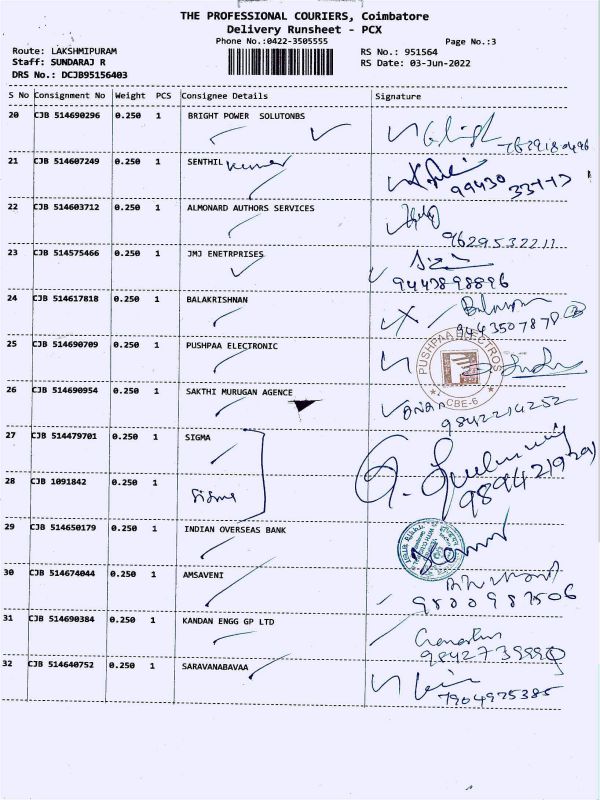 THE PROFESSIONAL COURIERS, Coimbatore
Delivery Runsheet - PCX
Phone No.:0422-3505555 Page No.:3
Route: LAKSHMIPURAM RS No.: 951564
Staff: SUNDARAJ R RS Date: 03-Jun-2022
DRS No.: DCJB95156403
S No Consignment No Weight PCS Consignee Details Signature
20 CJB 514690296 0.250 1 BRIGHT POWER SOLUTONBS
21 CJB 514607249 0.250 1 SENTHIL Kumar
22 CJB 514603712 0.250 1 ALMONARD AUTHORS SERVICES
9629532211
23 CJB 514575466 0.250 1 JMJ ENETRPRISES
9443898896
24 CJB 514617818 0.250 1 BALAKRISHNAN
9443507878
25 CJB 514690709 0.250 1 PUSHPAA ELECTRONIC
26 CJB 514690954 0.250 1 SAKTHI MURUGAN AGENCE
CBE-6
9842214252
27 CJB 514479701 0.250 1 SIGMA
28 CJB 1091842 0.250 1 Sigma
29 CJB 514650179 0.250 1 INDIAN OVERSEAS BANK
30 CJB 514674044 0.250 1 AMSAVENI
31 CJB 514690384 0.250 1 KANDAN ENGG GP LTD
32 CJB 514640752 0.250 1 SARAVANABAVAA
7904925385